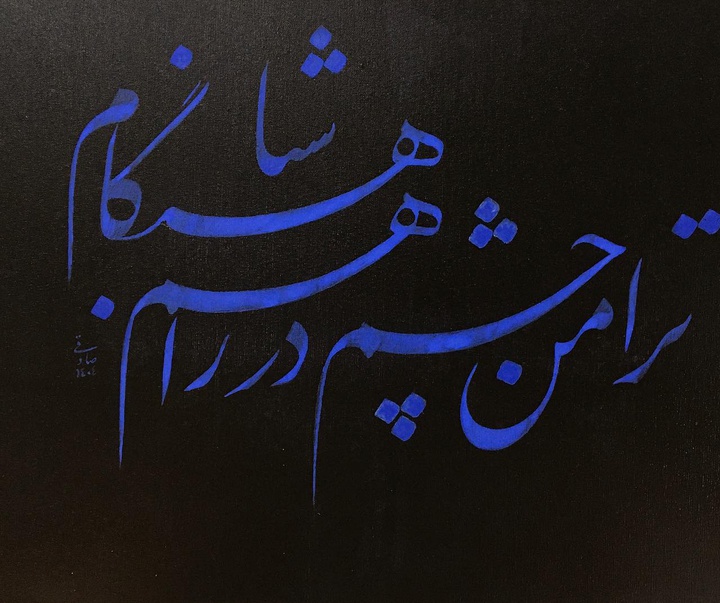 ترا من چشم در راهم
شباهنگام
صادقی